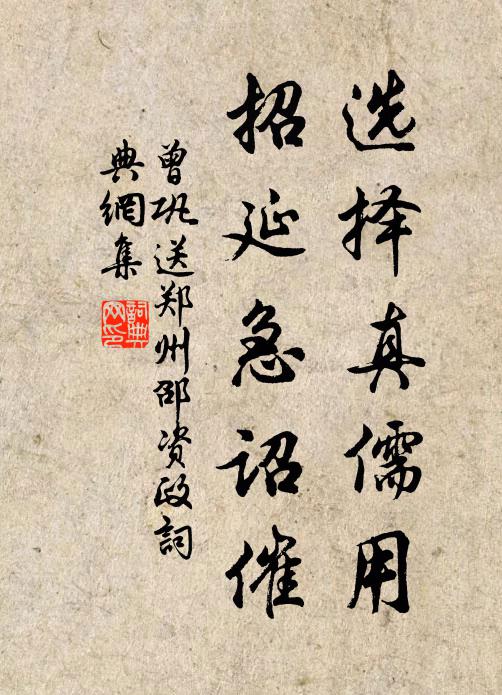 选择真儒用
招延急诏催
曾巩送郑州邵资政詞
典網集
詞典網印